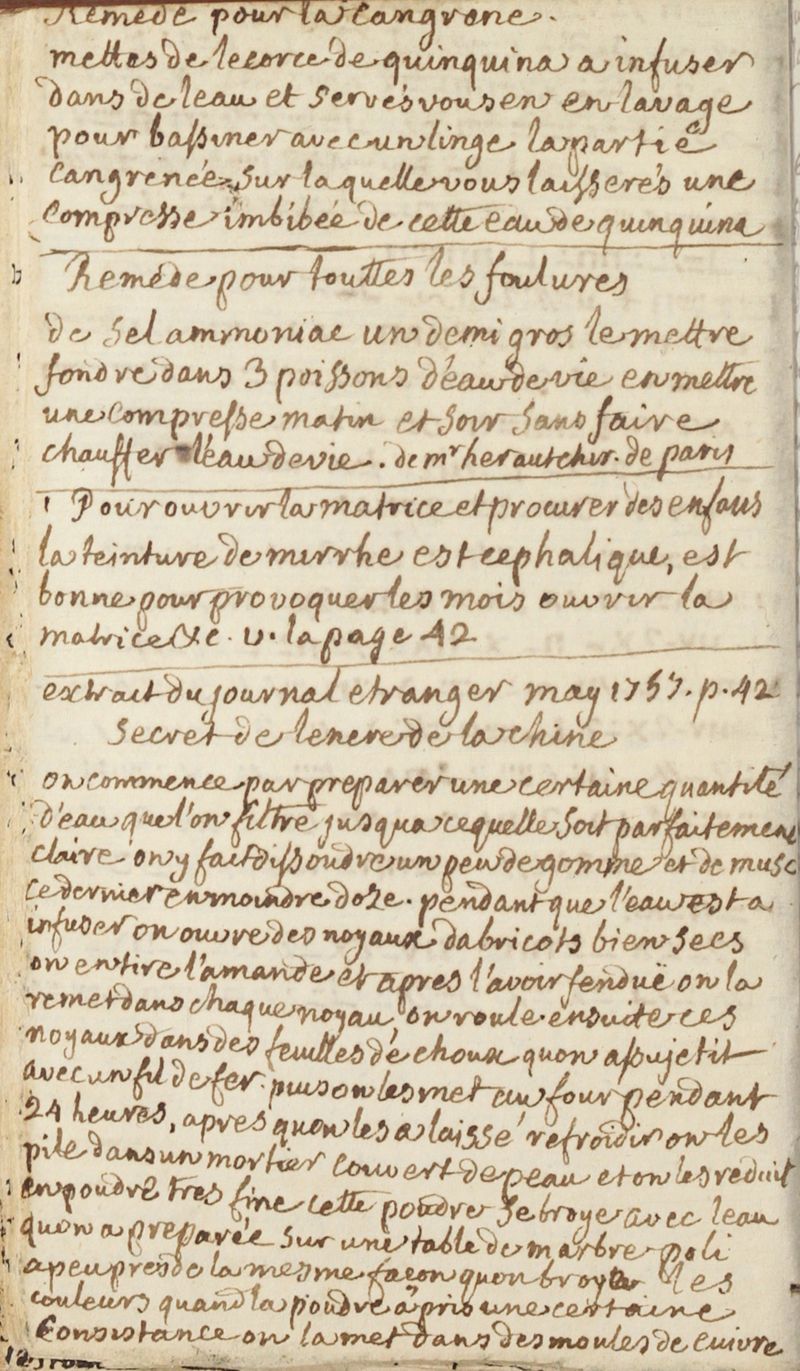 Remede pour la Cangrene.
mettes de lecorce de quinquina a infuser
dans de leau et servés vous en en lavage
pour bassiner avec un linge la partie
Cangrenée, sur laquelle vous laisserés une
compresse imbibée de cette eau de quinquina
Remede pour touttes les foulures
de sel ammoniac un demi gros le mettre
fondre dans 3 poissons d'eau de vie en mettre
une compresse matin et soir sans faire
chauffer l'eau de vie. de mr heraut chir. de paris
Pour ouvrir la matrice et procurer des enfans
la teinture de mirrhe est cephalique, est
bonne pour provoquer les mois ouvrir la
matrice &c. v. la page 42
extrait du journal etranger may 1757. p. 42
Secret de lencre de la chine
on commence par preparer une certaine quantité
d'eau que l'on filtre jusqua ce quelle soit parfaitement
claire on y fait dissoudre un peu de gomme et de musc
ce dernier en moindre doze. pendant que l'eau est a
infuser on ouvre des noyaux dabricots bien secs
on en tire l'amande et apres l'avoir fendue on la
remet dans chaque noyau, on roule ensuite ces
noyaux dans des feuilles de choux quon assujetit
avec un fil de fer. puis on les met au four pendant
24 heures, apres quon les a laissé refroidir on les
pile dans un mortier couvert de peau et on les reduit
en poudre tres fine cette poudre se broye avec leau
quon a preparée sur une table de marbre poli
a peu pres de la mesme façon quon broye les
couleurs quand la poudre a pris une certaine
Consistance on la met dans des moules de cuivre